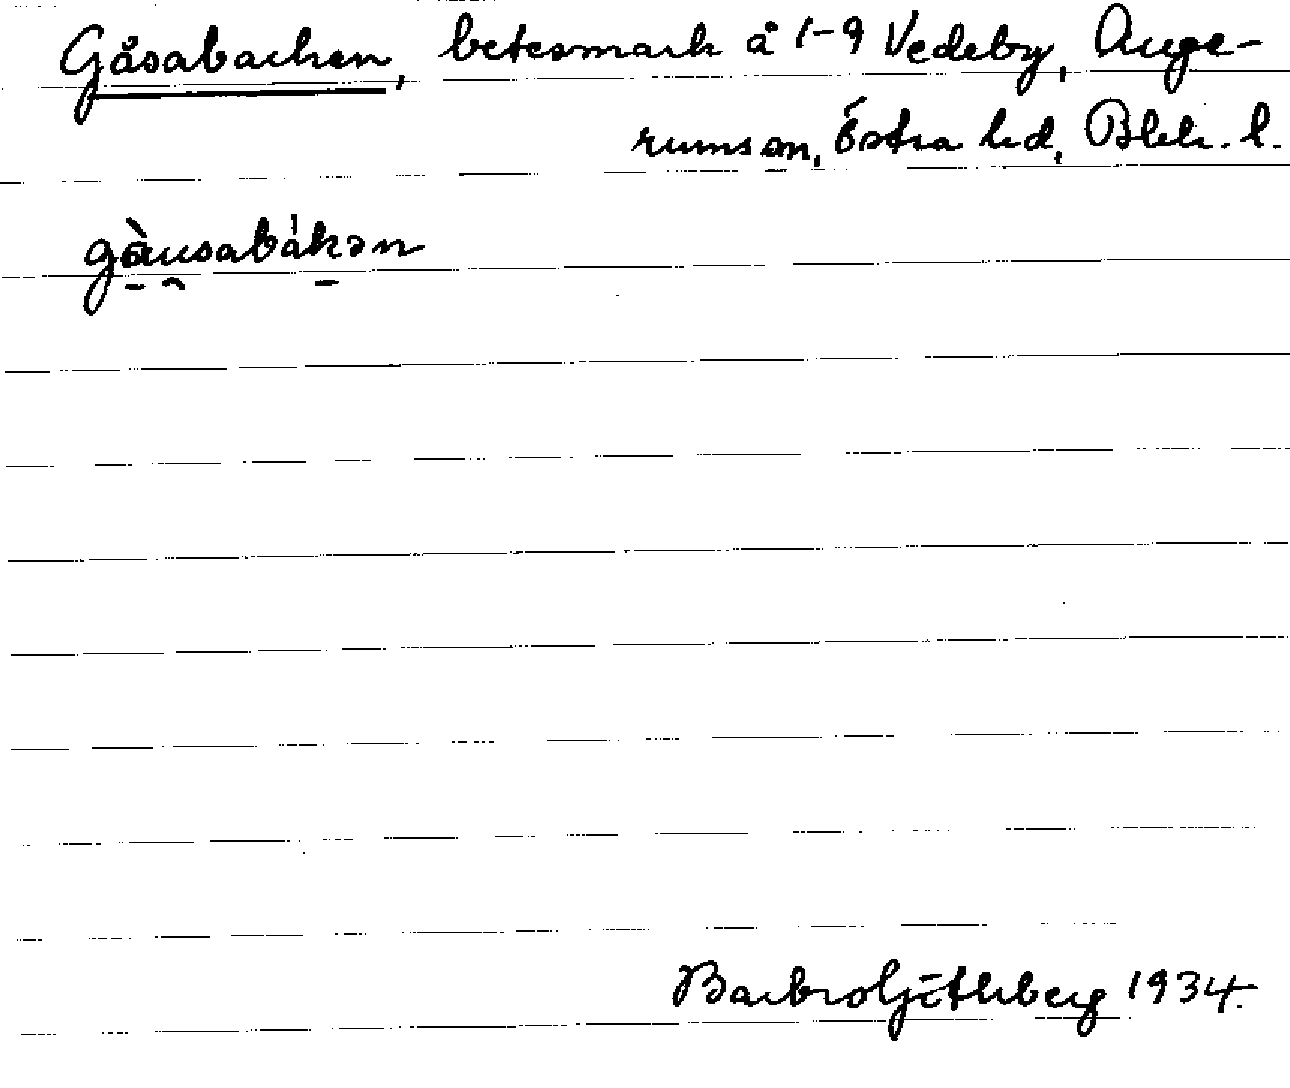 Gåsabacken, betesmark å 1-9 Vedeby, Auge-
rums sn, Östra hd, Blek. l.
gàusabákən
Barbro Göthberg 1934.